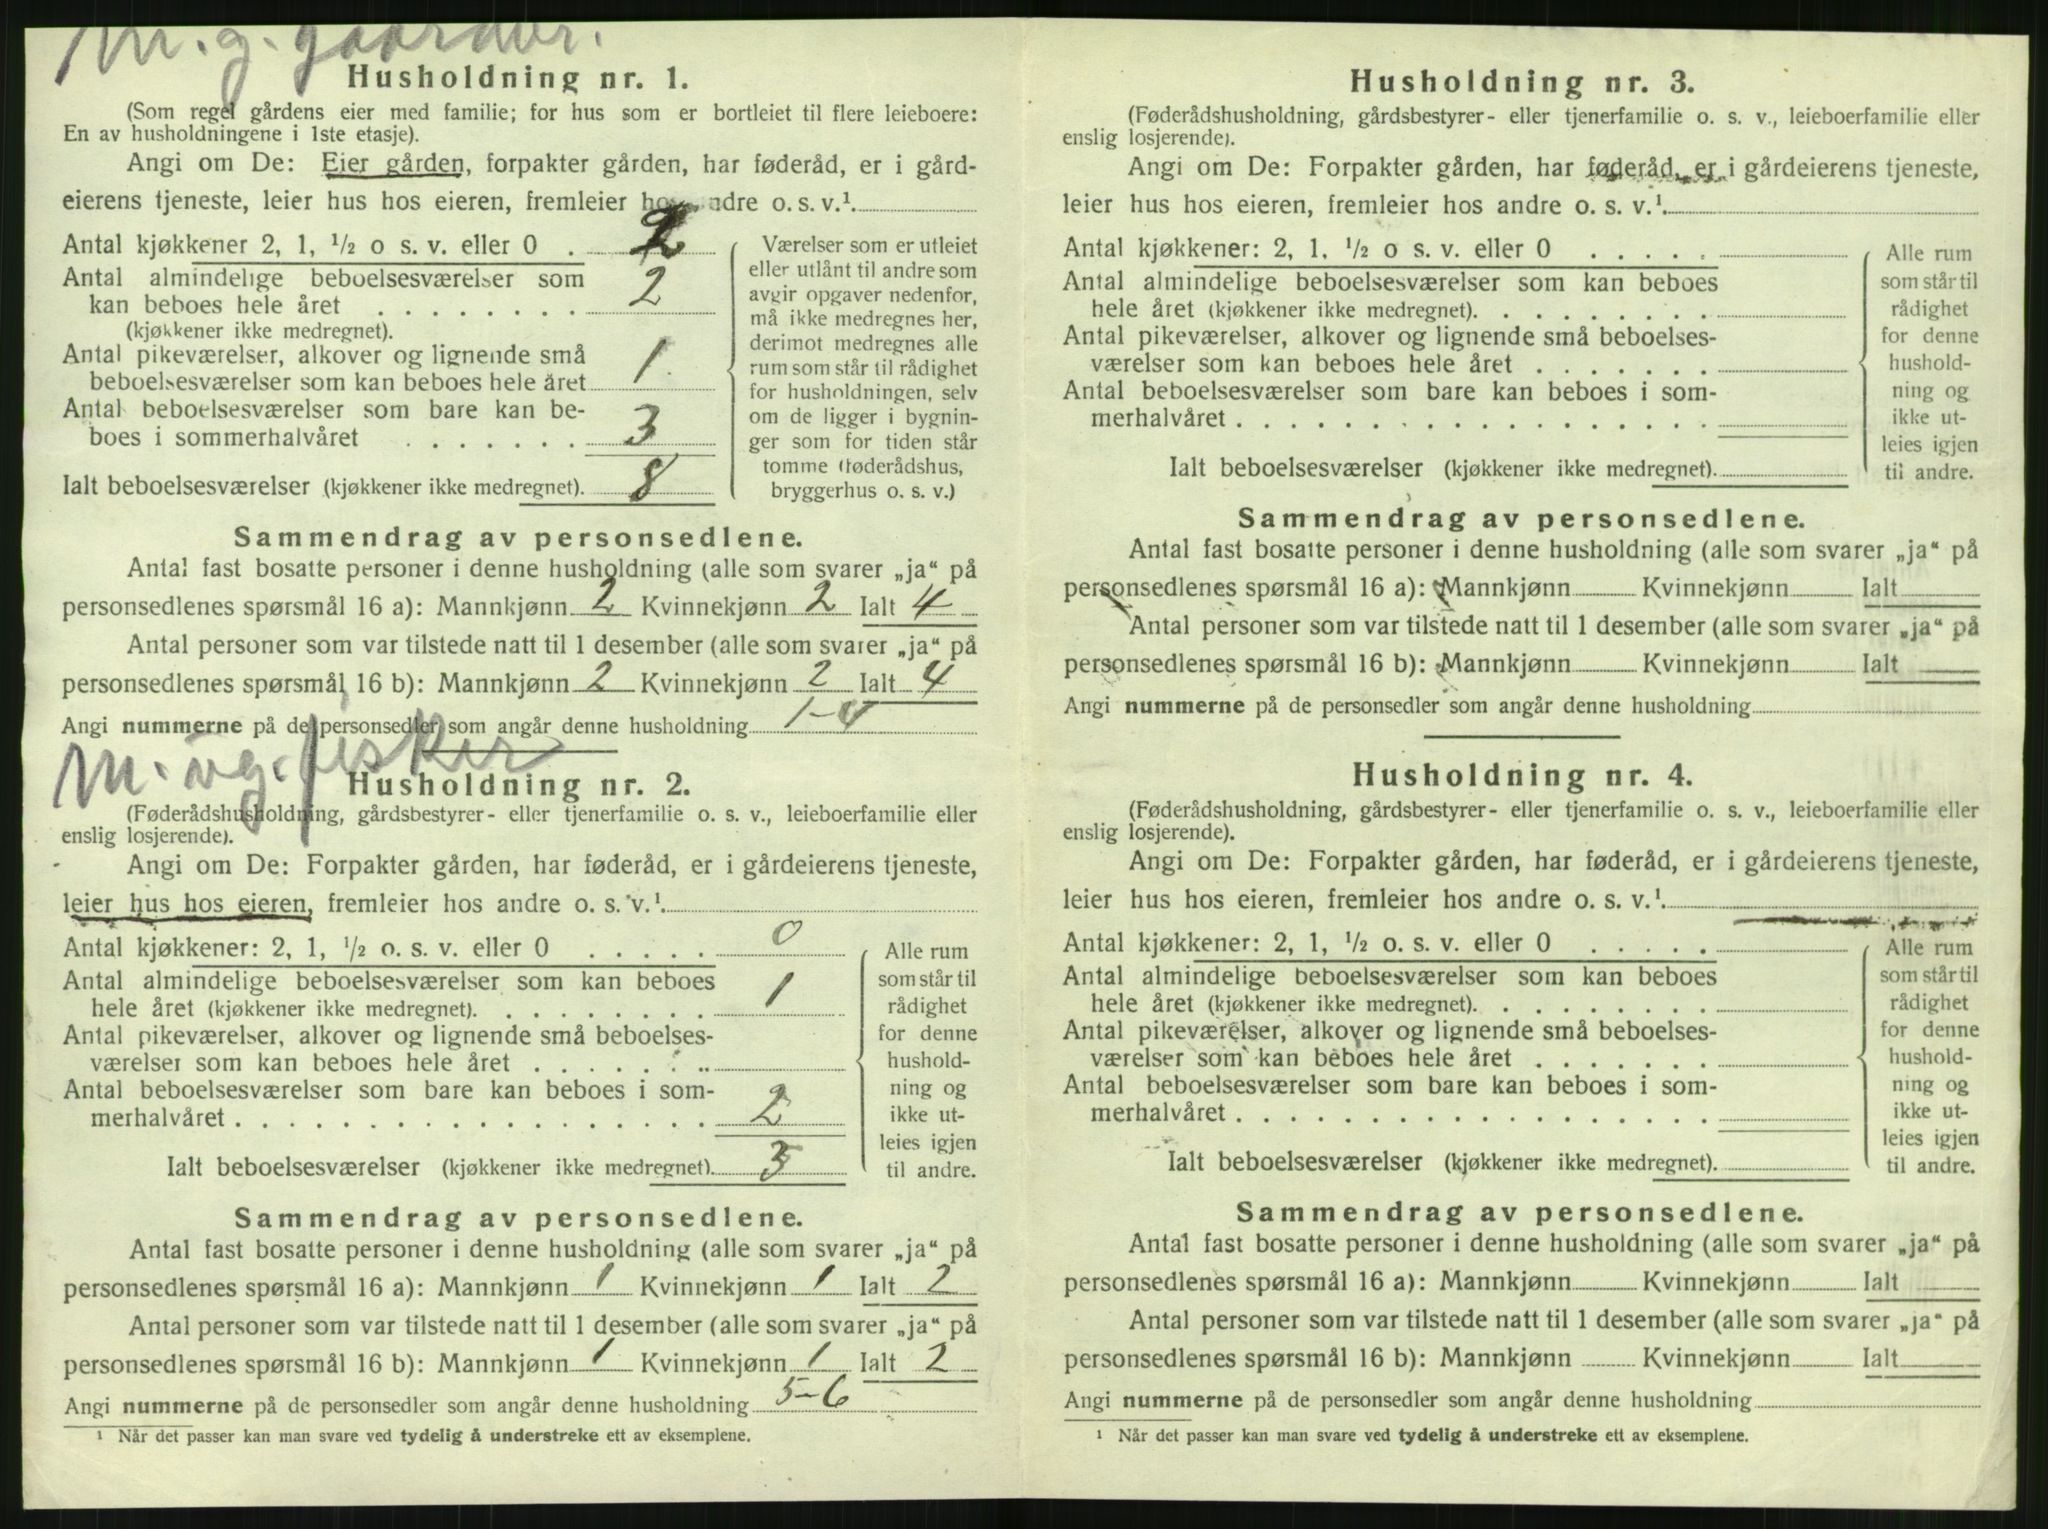 m. g. gaardbr.
Husholdning nr. 1.
(Som regel gårdens eier med familie; for hus som er bortleiet til flere leieboere:
En av husholdningene i 1ste etasje).
Angi om De: Eier gården, forpakter gården, har føderåd, er i gård-
eierens tjeneste, leier hus hos eieren, fremleier hos andre o. s. v.¹.
Antal kjøkkener 2, 1, ½ o s. v. eller 0 . 2
Antal almindelige beboelsesværelser som
kan beboes hele året . . . . . . . . 2
(kjøkkener ikke medregnet).
Antal pikeværelser, alkover og lignende små
beboelsesværelser som kan beboes hele året 1
Antal beboelsesværelser som bare kan be-
boes i sommerhalvåret . . . . . . . 3
Ialt beboelsesværelser (kjøkkener ikke medregnet). 8
Værelser som er utleiet
eller utlånt til andre som
avgir opgaver nedenfor,
må ikke medregnes her,
derimot medregnes alle
rum som står til rådighet
for husholdningen, selv
om de ligger i bygnin-
ger som for tiden står
tomme (føderådshus,
bryggerhus o. s. v.)
Sammendrag av personsedlene.
Antal fast bosatte personer i denne husholdning (alle som svarer „ja“ på
personsedlenes spørsmål 16 a): Mannkjønn 2 Kvinnekjønn 2 Ialt 4
Antal personer som var tilstede natt til 1 desember (alle som svarer „ja“ på
personsedlenes spørsmål 16 b): Mannkjønn 2 Kvinnekjønn 2 Ialt 4
Angi nummerne på de personsedler som angår denne husholdning 1-4
m. og. fisker
Husholdning nr. 2.
(Føderådshusholdning, gårdsbestyrer- eller tjenerfamilie o. s. v., leieboerfamilie eller
enslig losjerende).
Angi om De: Forpakter gården, har føderåd, er i gårdeierens tjeneste,
leier hus hos eieren, fremleier hos andre o. s. v.¹.
Antal kjøkkener: 2, 1, ½ o. s. v. eller 0 . . . . . 0
Antal almindelige beboelsesværelser som kan beboes
hele året (kjøkkener ikke medregnet). . . . . . . . . 1
Antal pikeværelser, alkover og lignende små beboelses-
værelser som kan beboes hele året . . . . . . .
Antal beboelsesværelser som bare kan beboes i som-
merhalvåret . . . . . . . . . . . . . . . . . . 2
Ialt beboelsesværelser (kjøkkener ikke medregnet). 3
Alle rum
som står til
rådighet
for denne
hushold-
ning og
ikke ut-
leies igjen
til andre.
Sammendrag av personsedlene.
Antal fast bosatte personer i denne husholdning (alle som svarer „ja“ på
personsedlenes spørsmål 16 a): Mannkjønn 1 Kvinnekjønn 1 Ialt 2
Antal personer som var tilstede natt til 1 desember (alle som svarer „ja“ på
personsedlenes spørsmål 16 b): Mannkjønn 1 Kvinnekjønn 1 Ialt 2
Angi nummerne på de personsedler som angår denne husholdning 5-6
¹ Når det passer kan man svare ved tydelig å understreke ett av eksemplene.
Husholdning nr. 3.
(Føderådshusholdning, gårdsbestyrer- eller tjenerfamilie o. s. v., leieboerfamilie eller
enslig losjerende).
Angi om De: Forpakter gården, har føderåd, er i gårdeierens tjeneste,
leier hus hos eieren, fremleier hos andre o. s. v.¹.
Antal kjøkkener: 2, 1, ½ o s. v. eller 0 . . . . .
Antal almindelige beboelsesværelser som kan beboes
hele året (kjøkkener ikke medregnet). . . . . . . . .
Antal pikeværelser, alkover og lignende små beboelses-
værelser som kan beboes hele året . . . . . . .
Antal beboelsesværelser som bare kan beboes i som-
merhalvåret . . . . . . . . . . . . . . . . . .
Ialt beboelsesværelser (kjøkkener ikke medregnet).
Alle rum
som står til
rådighet
for denne
hushold-
ning og
ikke ut-
leies igjen
til andre.
Sammendrag av personsedlene.
Antal fast bosatte personer i denne husholdning (alle som svarer „ja“ på
personsedlenes spørsmål 16 a): Mannkjønn Kvinnekjønn Ialt
Antal personer som var tilstede natt til 1 desember (alle som svarer „ja“ på
personsedlenes spørsmål 16 b): Mannkjønn Kvinnekjønn Ialt
Angi nummerne på de personsedler som angår denne husholdning
Husholdning nr. 4.
(Føderådshusholdning, gårdsbestyrer- eller tjenerfamilie o. s. v., leieboerfamilie eller
enslig losjerende).
Angi om De: Forpakter gården, har føderåd, er i gårdeierens tjeneste,
leier hus hos eieren, fremleier hos andre o. s. v.¹.
Antal kjøkkener: 2, 1, ½ o. s. v. eller 0 . . . . .
Antal almindelige beboelsesværelser som kan beboes
hele året (kjøkkener ikke medregnet). . . . . . . . .
Antal pikeværelser, alkover og lignende små beboelses-
værelser som kan beboes hele året . . . . . . .
Antal beboelsesværelser som bare kan beboes i som-
merhalvåret . . . . . . . . . . . . . . . . . .
Ialt beboelsesværelser (kjøkkener ikke medregnet).
Alle rum
som står til
rådighet
for denne
hushold-
ning og
ikke ut-
leies igjen
til andre.
Sammendrag av personsedlene.
Antal fast bosatte personer i denne husholdning (alle som svarer „ja“ på
personsedlenes spørsmål 16 a): Mannkjønn Kvinnekjønn Ialt
Antal personer som var tilstede natt til 1 desember (alle som svarer „ja“ på
personsedlenes spørsmål 16 b): Mannkjønn Kvinnekjønn Ialt
Angi nummerne på de personsedler som angår denne husholdning
¹ Når det passer kan man svare ved tydelig å understreke ett av eksemplene.